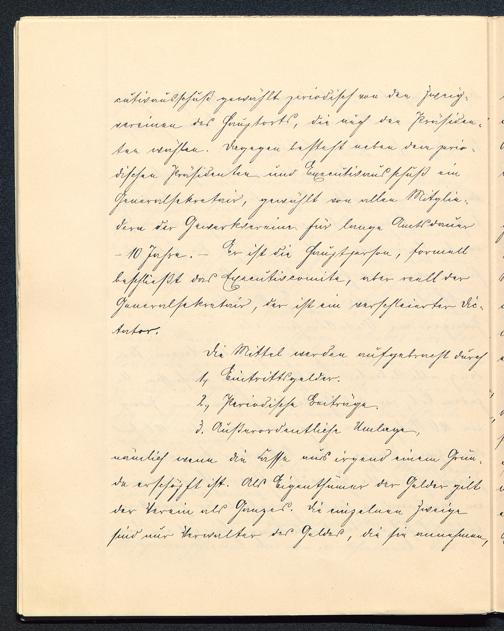 cutivausschuß gewählt periodisch von den Zweig-
vereinen des Hauptorts, die auch den Präsiden-
ten wählen. Dagegen besteht neben dem perio-
dischen Präsidenten und Executivausschuß ein
Generalsekretair, gewählt von allen Mitglie-
dern der Gewerkvereine für lange Amtsdauer
– 10 Jahre. – Er ist die Hauptperson, formell
beschließt das Executivcomite, aber reell der
Generalsekretair, der ist ein verschleierter Dic-
tator.
Die Mittel werden aufgebracht durch
1, Eintrittsgelder.
2, Periodische Beiträge.
3. Außerordentliche Umlage,
nämlich wenn die Casse aus irgend einem Grun-
de erschöpft ist. Als Eigenthümer der Gelder gilt
der Verein als Ganzes. Die einzelnen Zweige
sind nur Verwalter des Geldes, die sie annehmen,